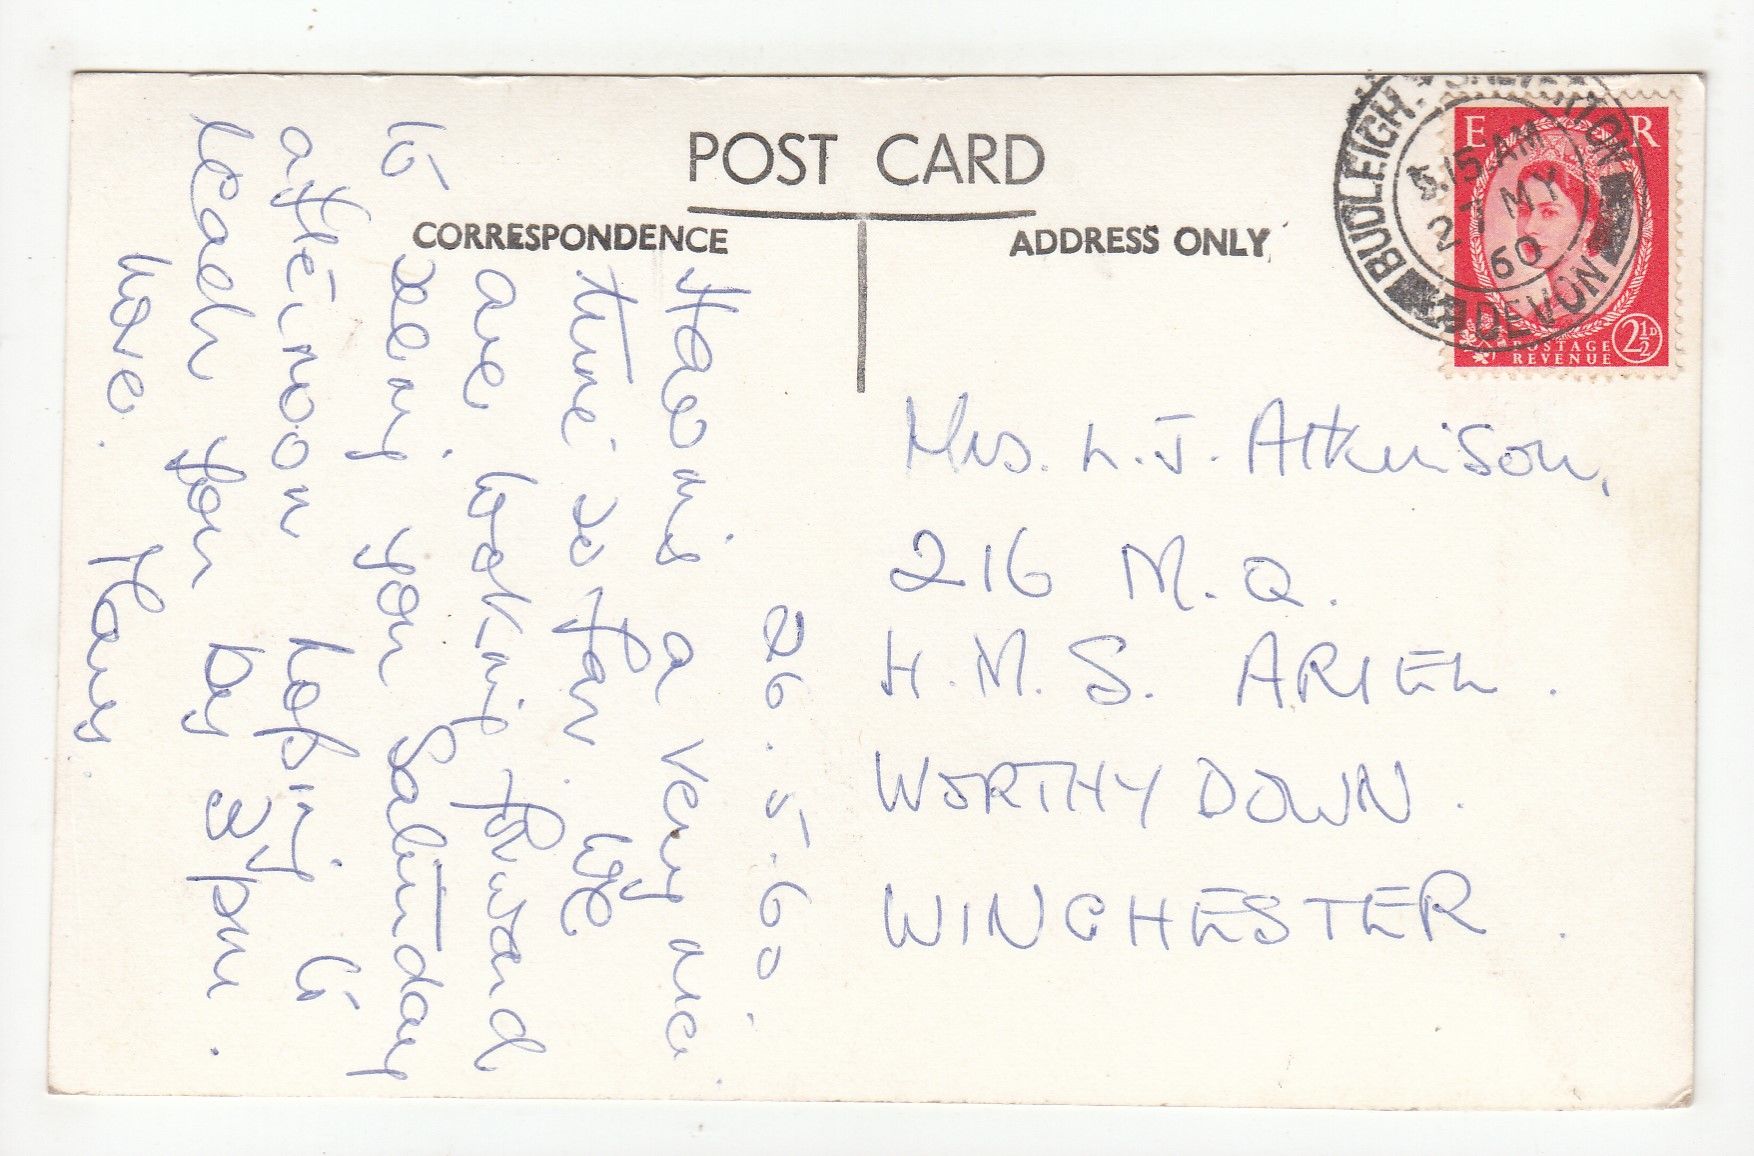 POST CARD
CORRESPONDENCE
ADDRESS ONLY
BUDLEIGH SALTERTON
5.15 AM
27 MY
60
DEVON
E R
POSTAGE
REVENUE
2½D
26.5.60
Having a very nice
time so far. We
are looking forward
to seeing you Saturday
afternoon hoping to
reach you by 3 pm.
love. Mary.
Mrs. L. J. Atkinson,
216 M.Q.
H.M.S. ARIEL.
WORTHY DOWN.
WINCHESTER.